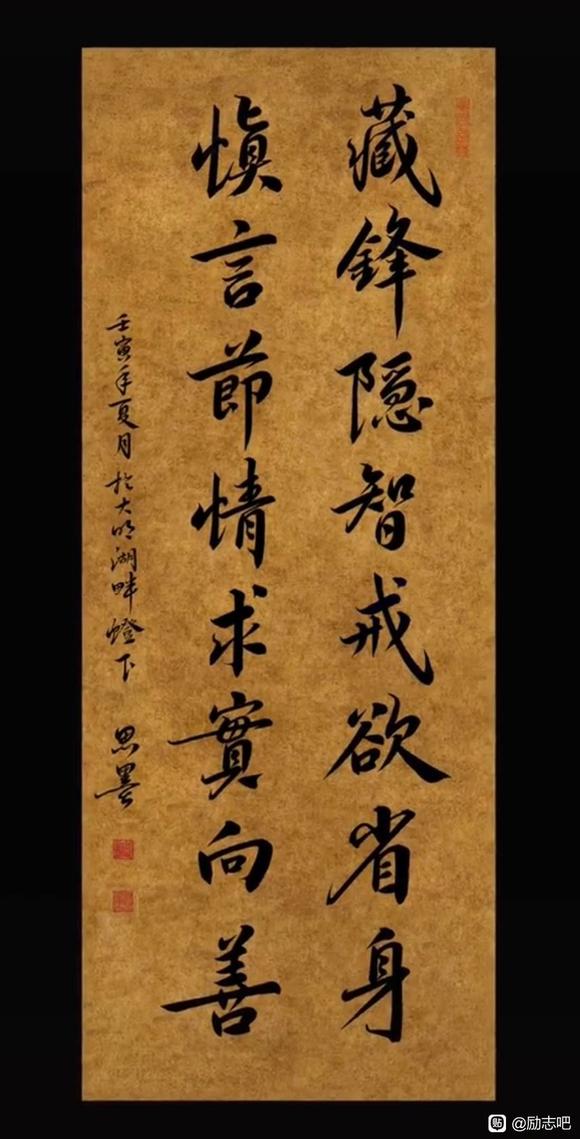 藏鋒隐智戒欲省身
慎言節情求實向善
壬寅年夏月於大明湖畔燈下
思墨
@励志吧